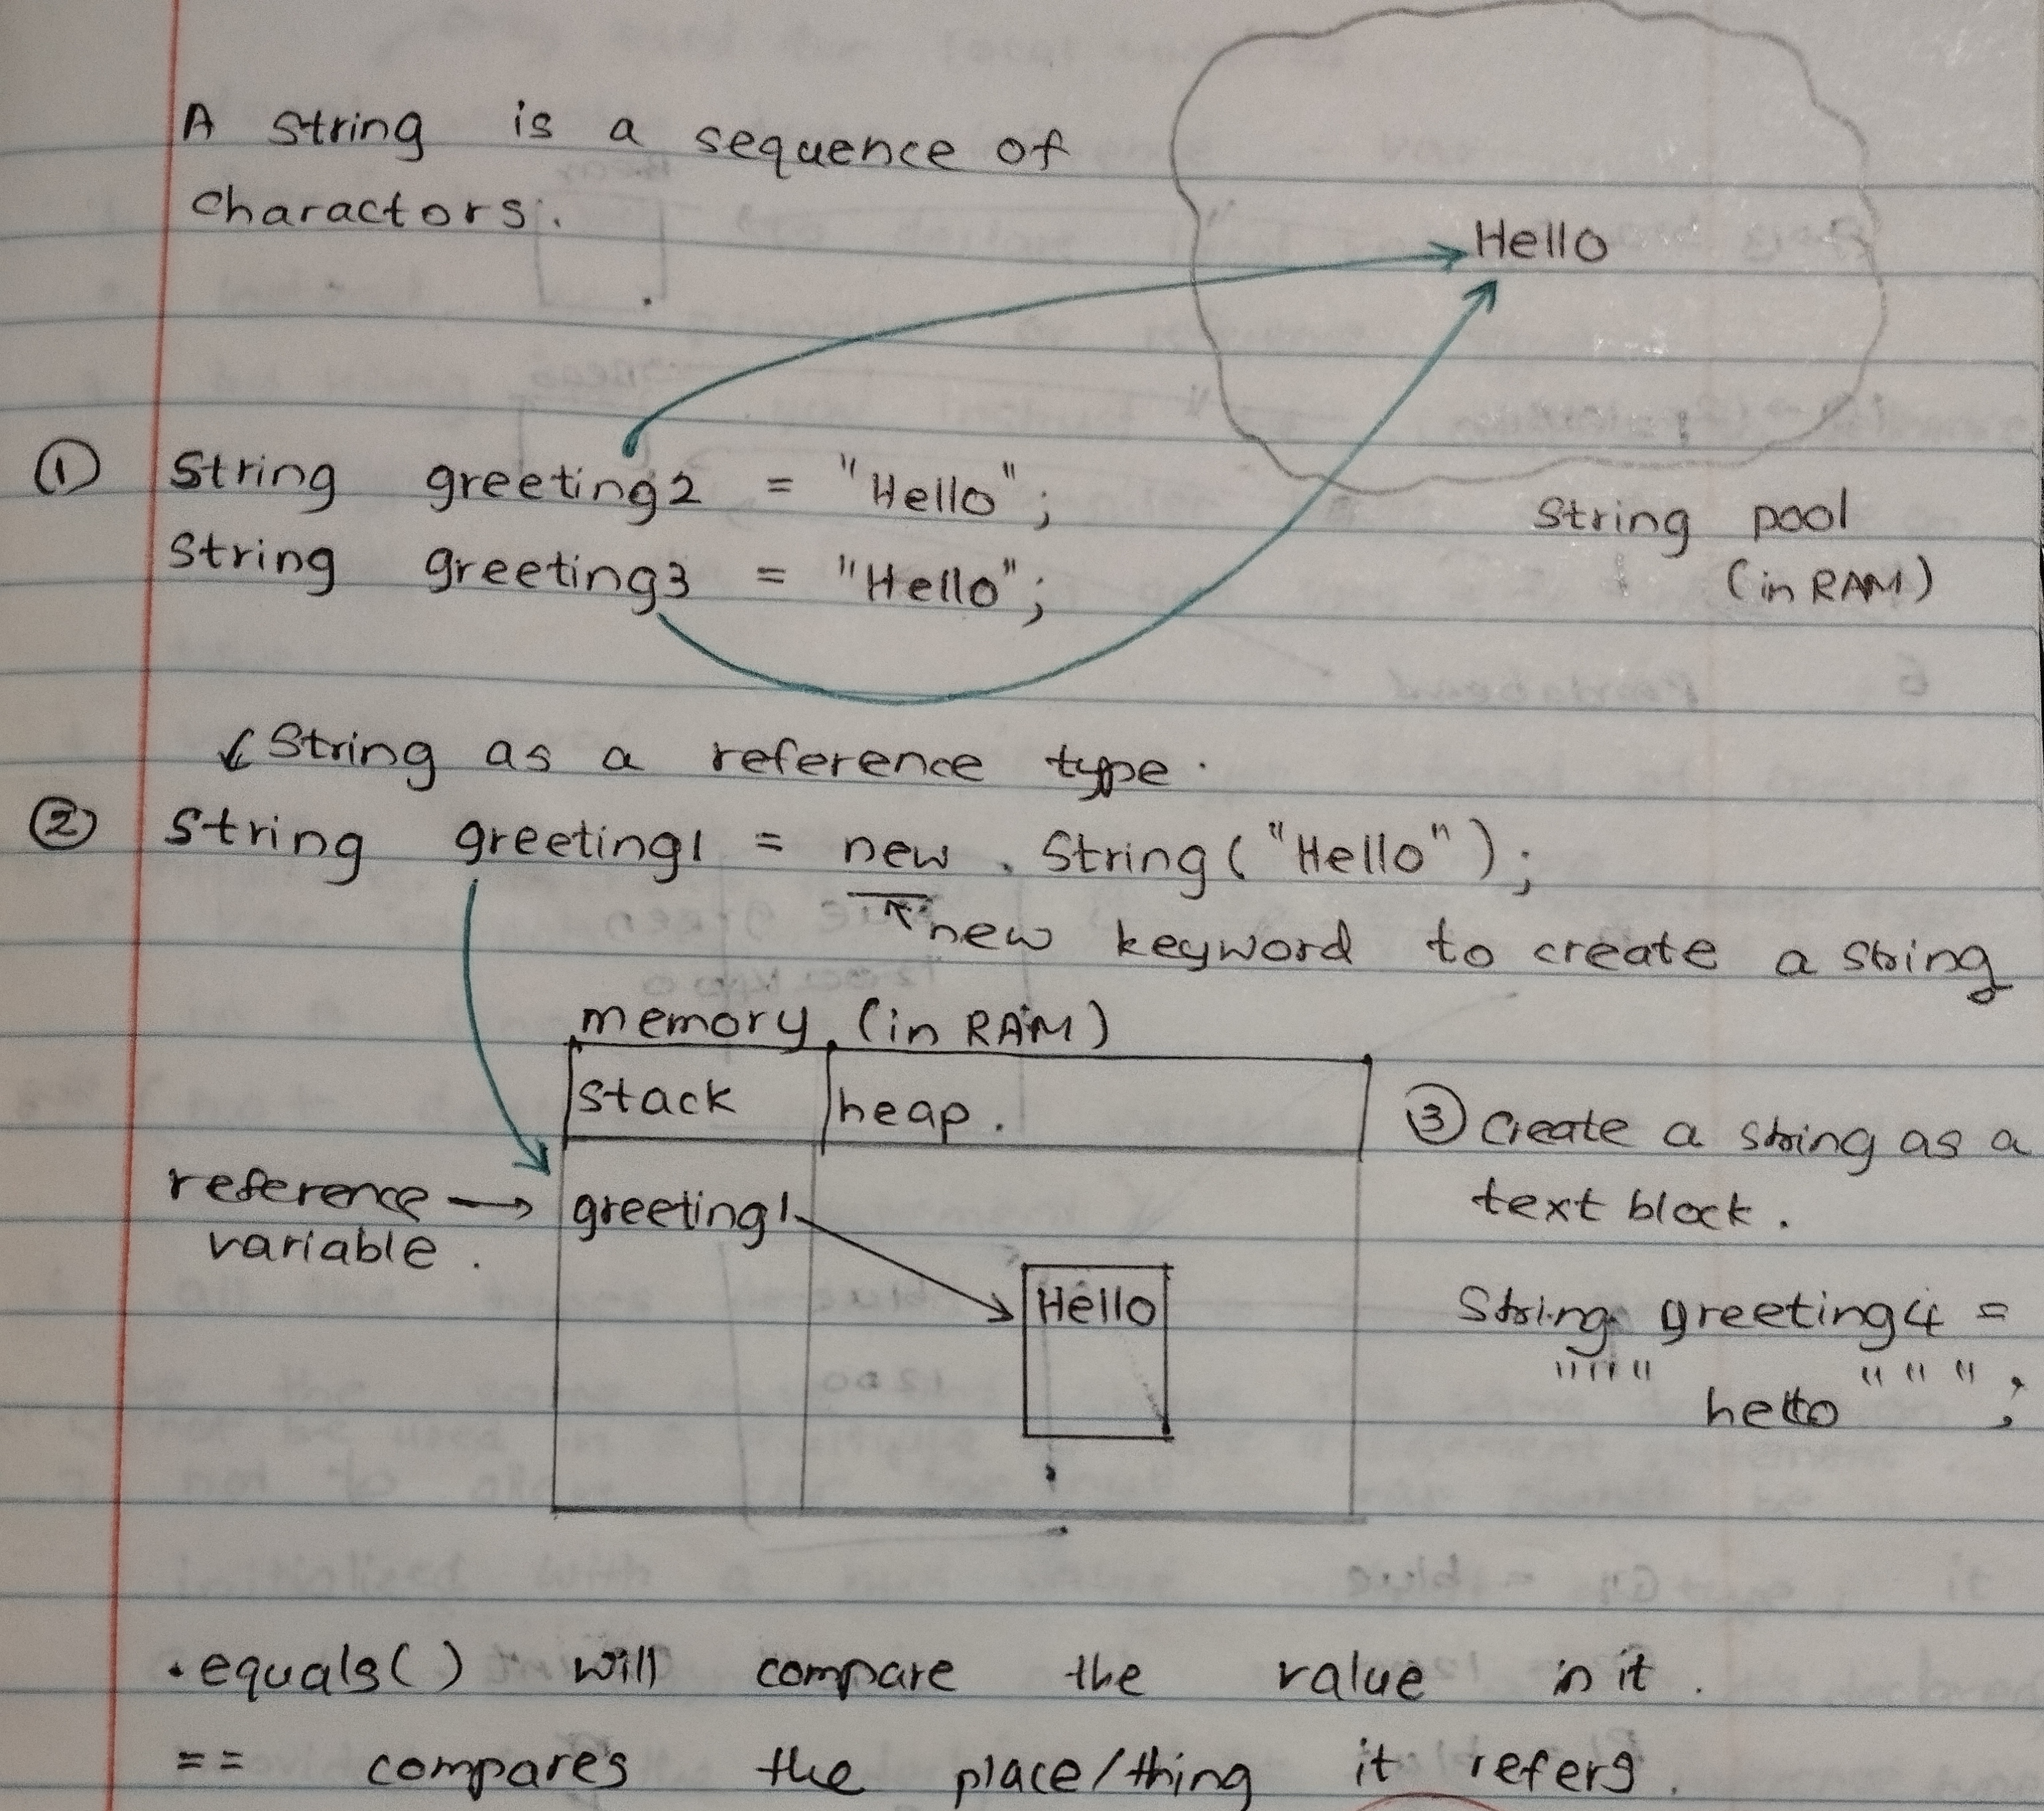 A string is a sequence of
charactors.
Hello
① String greeting2 = "Hello";
String greeting3 = "Hello";
String pool
(in RAM)
String as a reference type.
② String greeting1 = new String("Hello");
new keyword to create a string
memory (in RAM)
stack heap.
reference → greeting1
variable.
Hello
③ Create a string as a
text block.
String greeting4 =
""" """;
hello
.equals() will compare the value in it.
== compares the place/thing it refers.